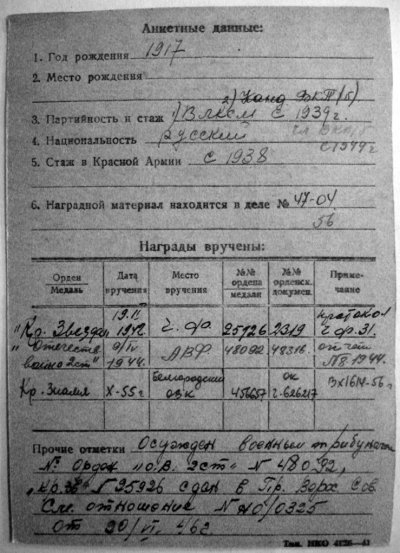 Анкетные данные:
1. Год рождения 1917
2. Место рождения
2) Канд ВКП(б)
3. Партийность и стаж 1) Влксм с 1939г.
4. Национальность русский
с 1944г
5. Стаж в Красной Армии с 1938
6. Наградной материал находится в деле № 47-04
56
Награды вручены:
Орден Медаль Дата вручения Место вручения №№ ордена медали №№ орденск. докумен. Приме- чание
"Кр. Звезда" 19.II 1942. г. ф. 25926 2319 протокол
"Отечеств война 2ст" 9/IV 1944. АВФ 48092 48316. от
№8 1944.
Кр. Знамя X-55г Белгородский ОВК 456657 ок г-626217 Вх1614-56г
Прочие отметки Осужден военным трибуналом
№ Орден "О.В. 2ст" N 48092,
"Кр. Зв" N 25926 сдан в Пр. Верх Сов.
См. отношение N 40/0325
от 20/VI 46г.
Тип. НКО 4126—43